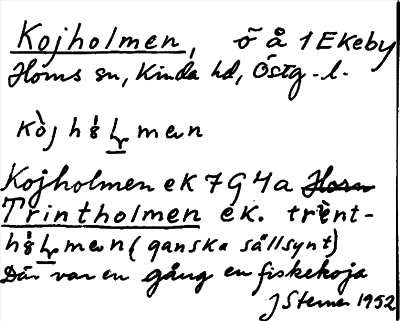 Kojholmen, ö å 1 Ekeby
Horns sn, Kinda hd, Östg. l.
kòjhålman
Kojholmen ek 7G4a Horn
Trintholmen ek. trent-
hålman (ganska sällsynt)
Där var en gång en fiskekoja
J Sterner 1952